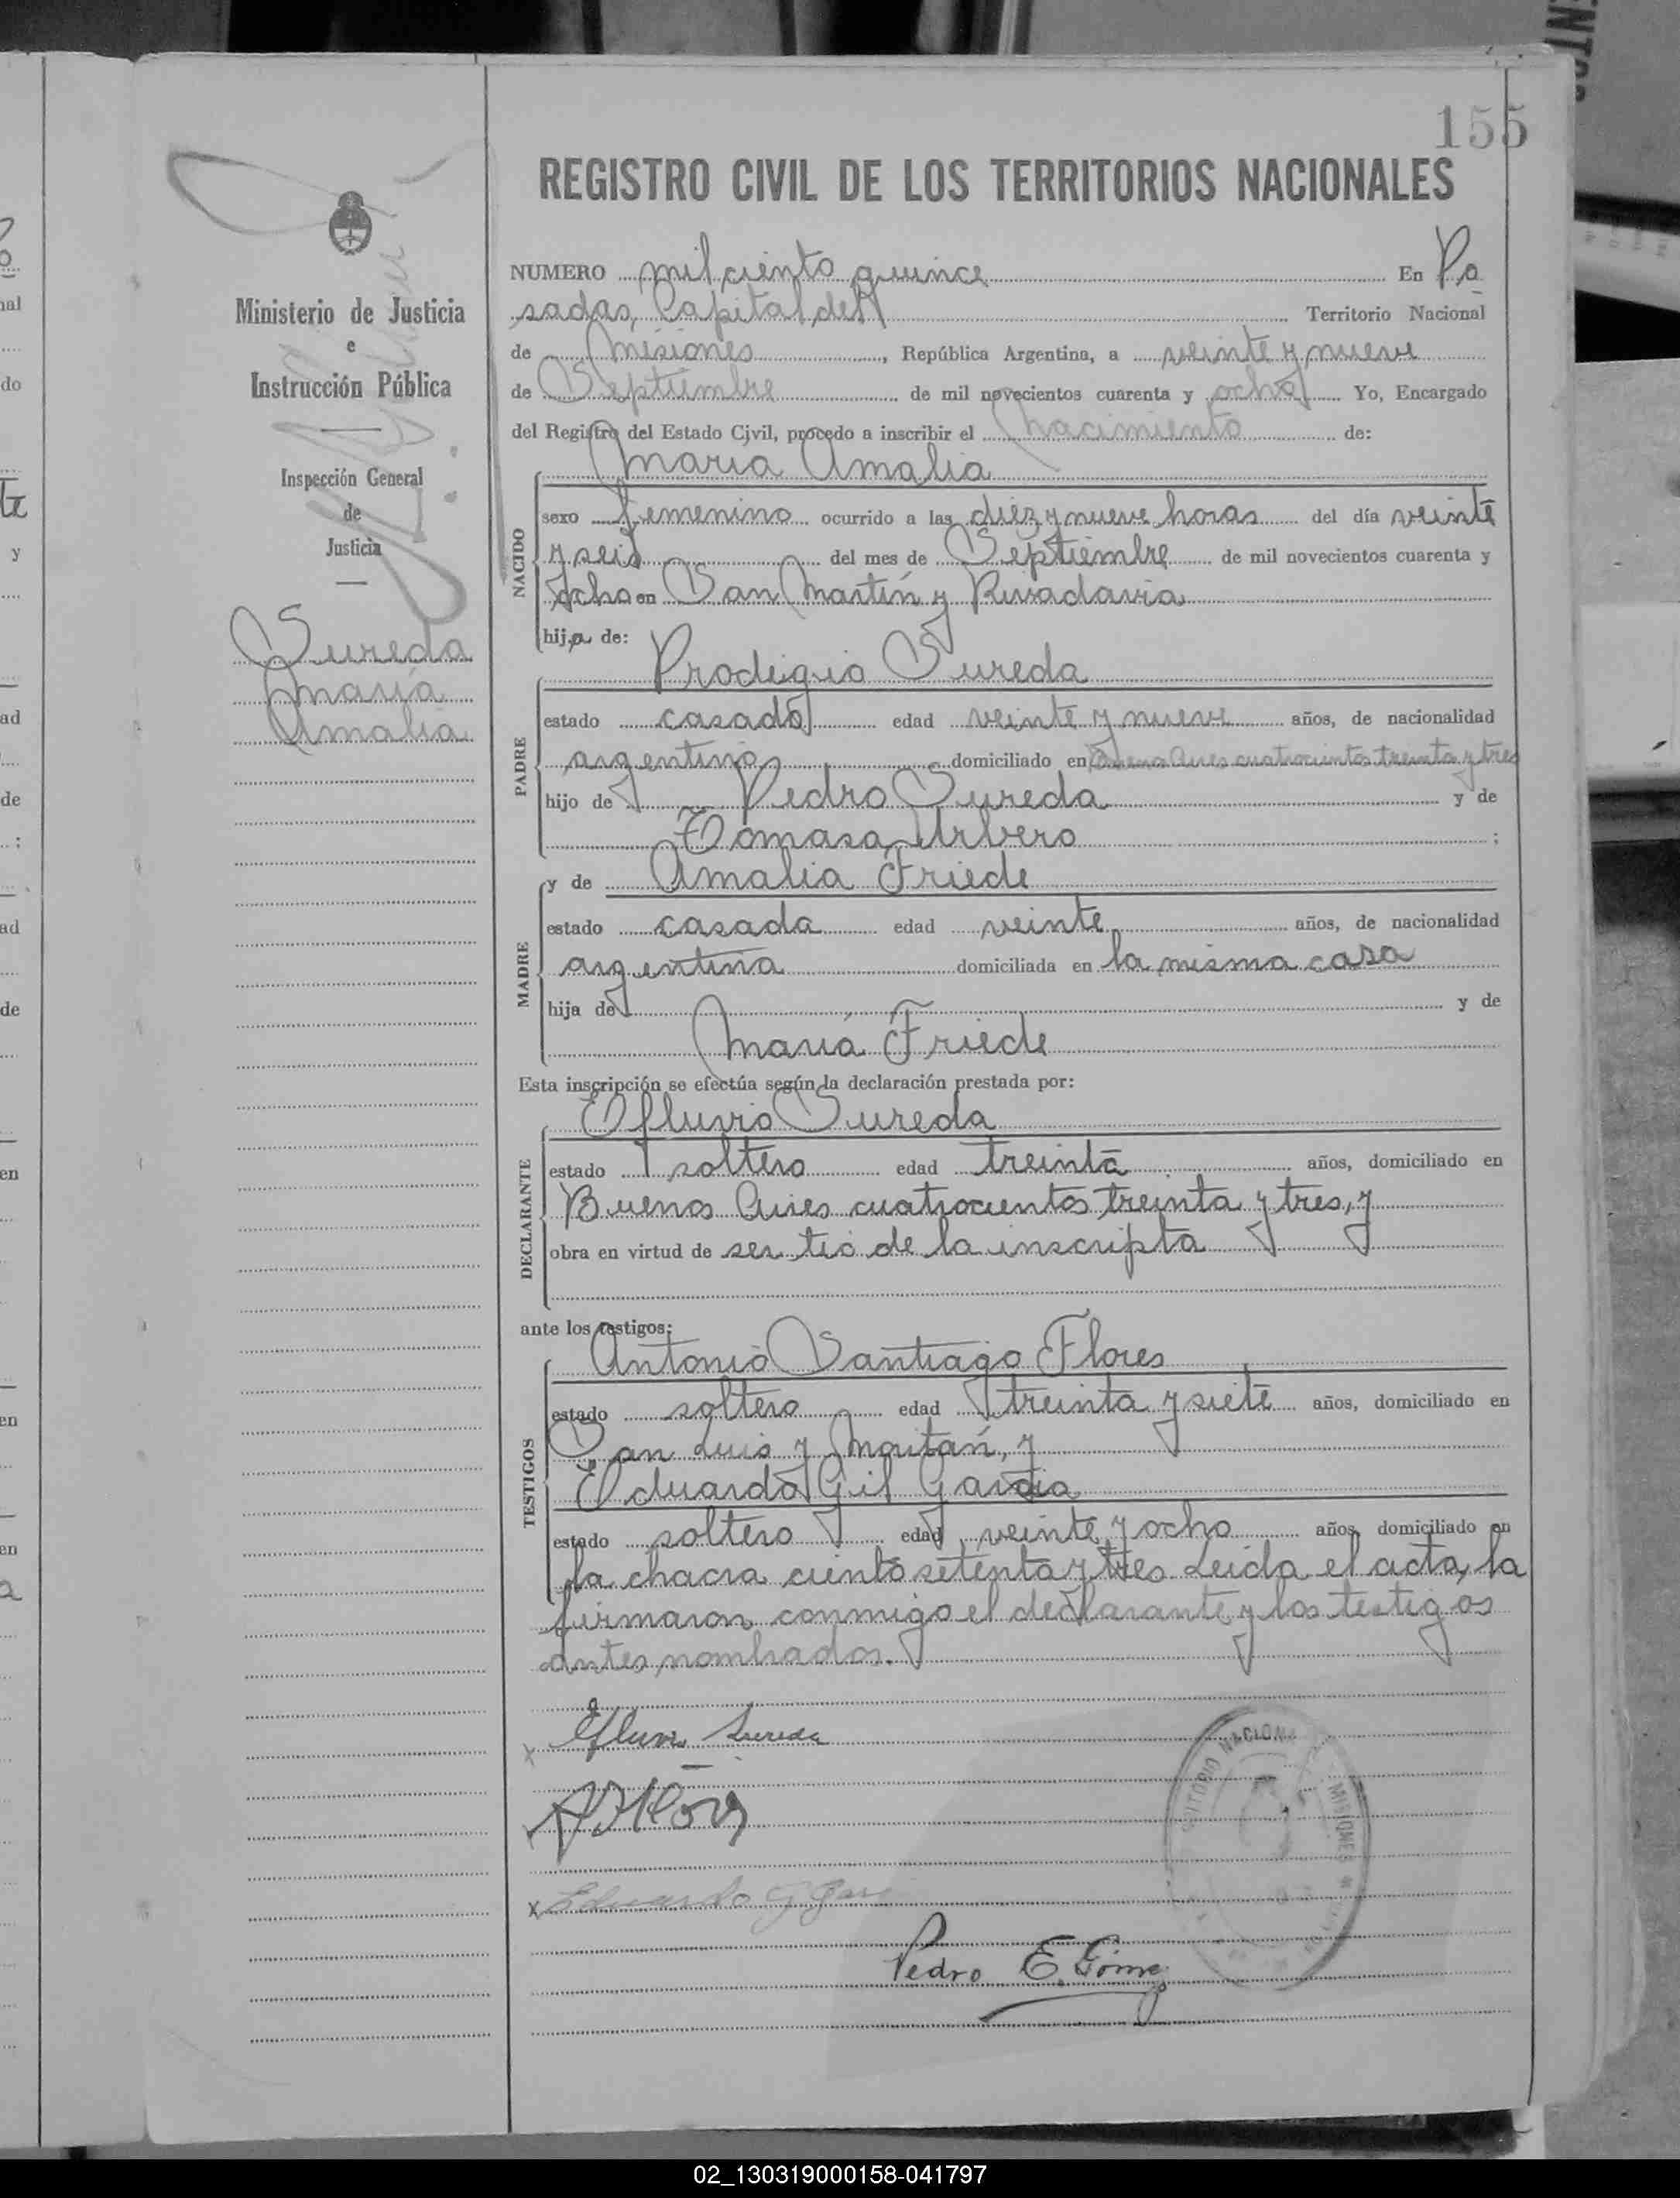 155
REGISTRO CIVIL DE LOS TERRITORIOS NACIONALES
Ministerio de Justicia
e
Instrucción Pública
Inspección General
de
Justicia
Sureda
María
Amalia
NUMERO mil ciento quince En Po
sadas, Capital del Territorio Nacional
de Misiones, República Argentina, a veinte y nueve
de Septiembre de mil novecientos cuarenta y ocho Yo, Encargado
del Registro del Estado Civil, procedo a inscribir el Nacimiento de:
NACIDO
María Amalia
sexo femenino ocurrido a las diez y nueve horas del día veinte
y seis del mes de Septiembre de mil novecientos cuarenta y
ocho en San Martín y Rivadavia
hija de:
PADRE
Prodigio Sureda
estado casado edad veinte y nueve años, de nacionalidad
argentino domiciliado en Buenos Aires cuatrocientos treinta y tres
hijo de Pedro Sureda y de
Tomasa Urbero;
MADRE
y de Amalia Friede
estado casada edad veinte años, de nacionalidad
argentina domiciliada en la misma casa
hija de y de
María Friede
Esta inscripción se efectúa según la declaración prestada por:
DECLARANTE
Efluvio Sureda
estado soltero edad treinta años, domiciliado en
Buenos Aires cuatrocientos treinta y tres, y
obra en virtud de ser tio de la inscripta
ante los testigos:
TESTIGOS
Antonio Santiago Flores
estado soltero edad treinta y siete años, domiciliado en
San Luis y Maitán, y
Eduardo Gil García
estado soltero edad veinte y ocho años, domiciliado en
la chacra ciento setenta y tres Leida el acta, la
firmaron conmigo el declarante y los testigos
antes nombrados.
x Efluvio Sureda
x Eduardo G
Pedro E. Gómez
NACIONAL
MISIONES
02_130319000158-041797